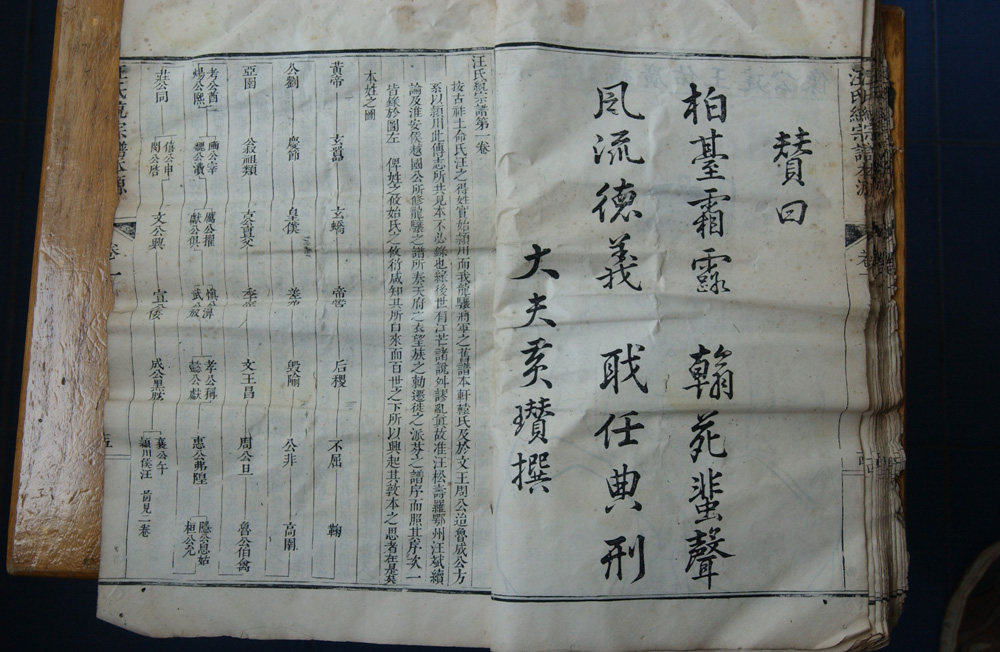 贊曰
柏臺霜靈 翰苑蜚聲
風流德義 職任典刑
大夫黃瓚撰
汪氏統宗譜第一卷
按古胙土命氏汪之得姓實始潁川而我龍驤將軍之舊譜本軒轅氏及於文王周公迨魯成公方
系以潁川此傳志所共見本不必錄也綠後世有江芒諸說舛謬亂真故准汪松壽羅鄂州汪斌續
論及淮安侯越國公所修龍驤之譜所奏天府之表望族之勅遷徙之派芬之譜序而照其序次一
皆錄於圖左 俾姓之攸始氏之攸衍咸知其所自來而百世之下所以興起其敦本之思者在是矣
本姓之圖
黃帝 玄囂 玄蟜 帝 后稷 不屈 鞠
公劉 慶節 皇僕 差 毀隃 公非 高圉
亞圉 公叔祖類 古公亶父 季 文王昌 周公旦 魯公伯禽
考公酋 煬公熙 幽公宰 魏公潰 厲公擢 獻公俱 慎公濞 武公敖 孝公稱 懿公戲 惠公弗湟 隱公息姑 桓公允
莊公同 僖公申 閔公啓 文公興 宣公倭 成公黑肱 襄公午 潁川侯汪 首見一卷
汪氏統宗譜本源
卷一
五